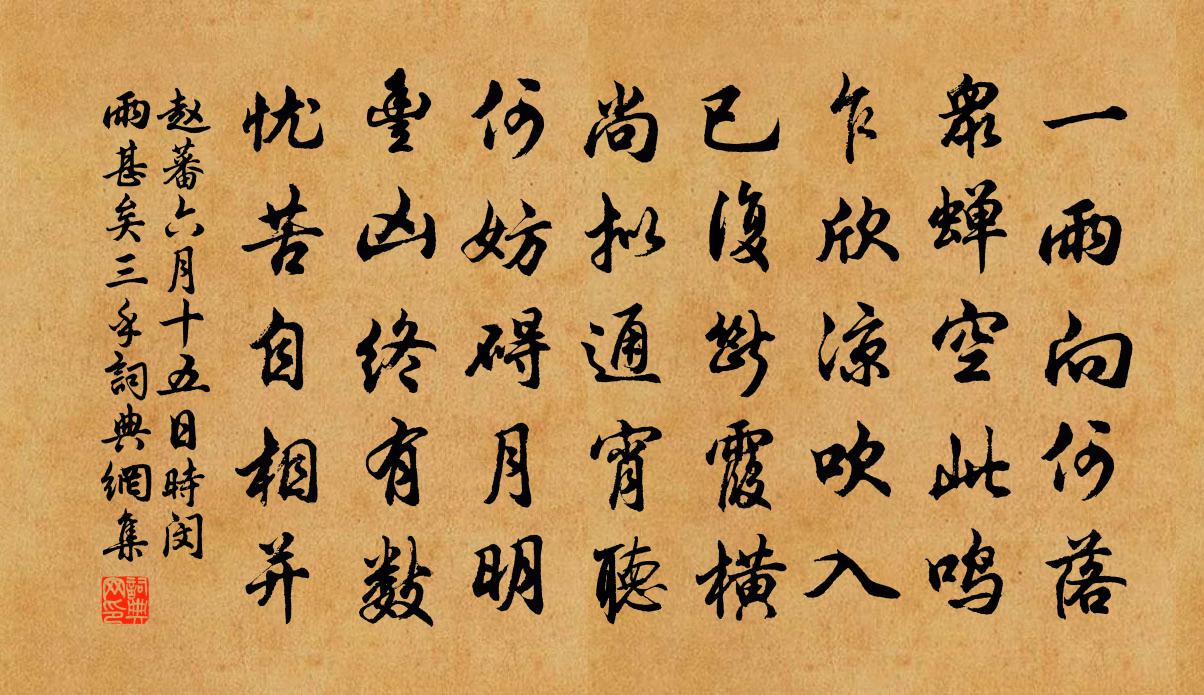 一雨向何落
衆蟬空此鳴
乍欣涼吹入
已復斷霞橫
尚拟通宵聽
何妨碍月明
豊凶終有數
忧苦自相并
赵蕃六月十五日時闵
雨甚矣三手詞典網集
詞典网印